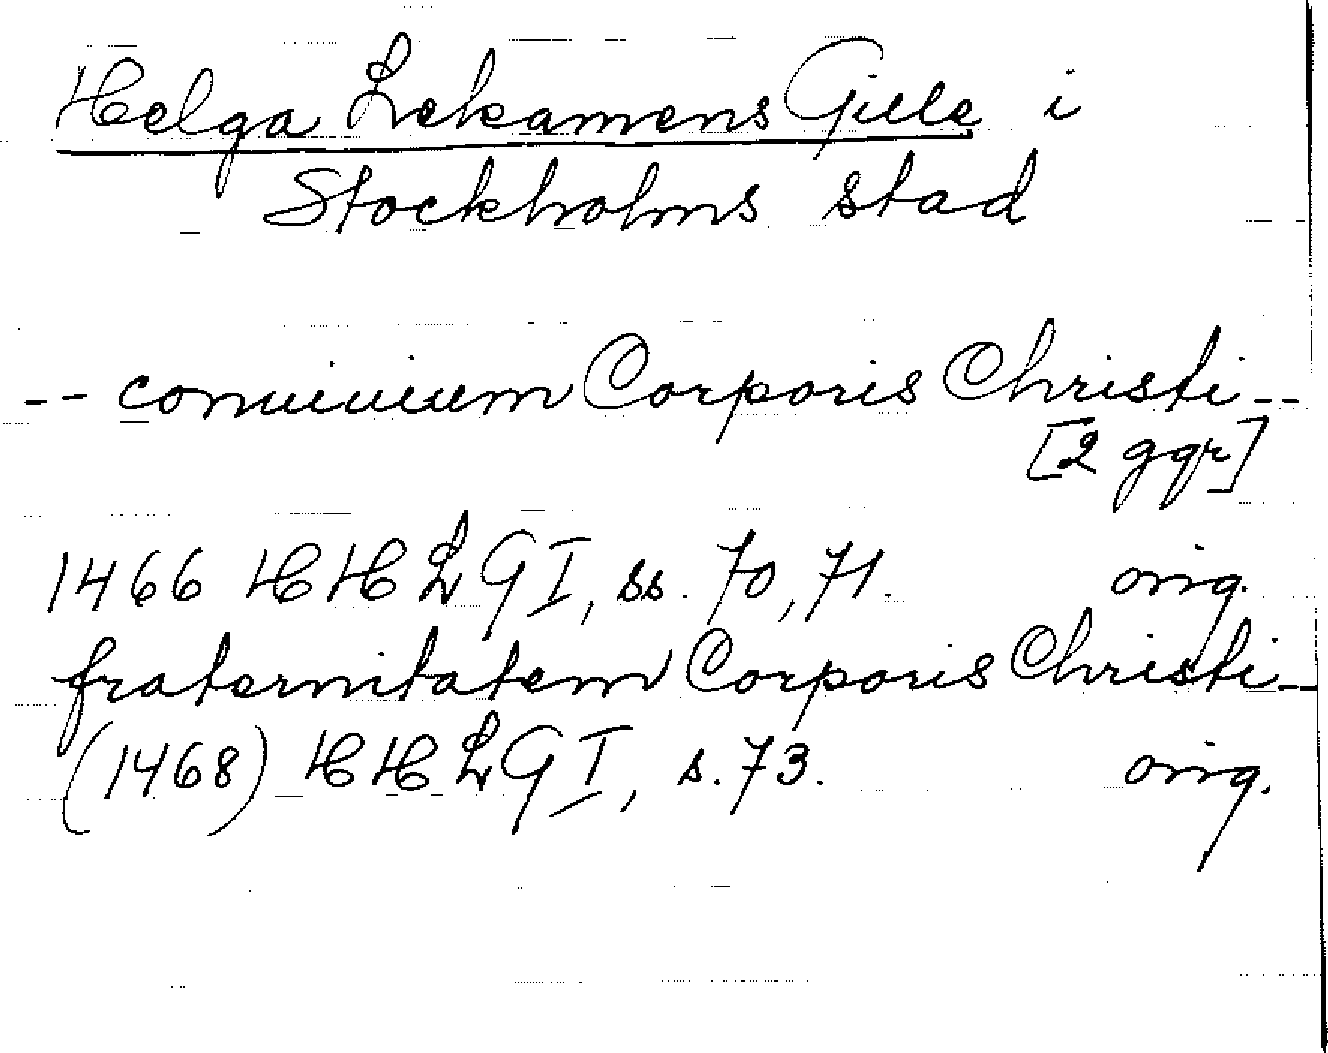 Helga Lekamens Gille i
Stockholms stad
-- conuiuium Corporis Christi --
[2 ggr]
1466 HHLG I, ss. 70, 71. orig.
fraternitatem Corporis Christi --
(1468) HHLG I, s. 73. orig.